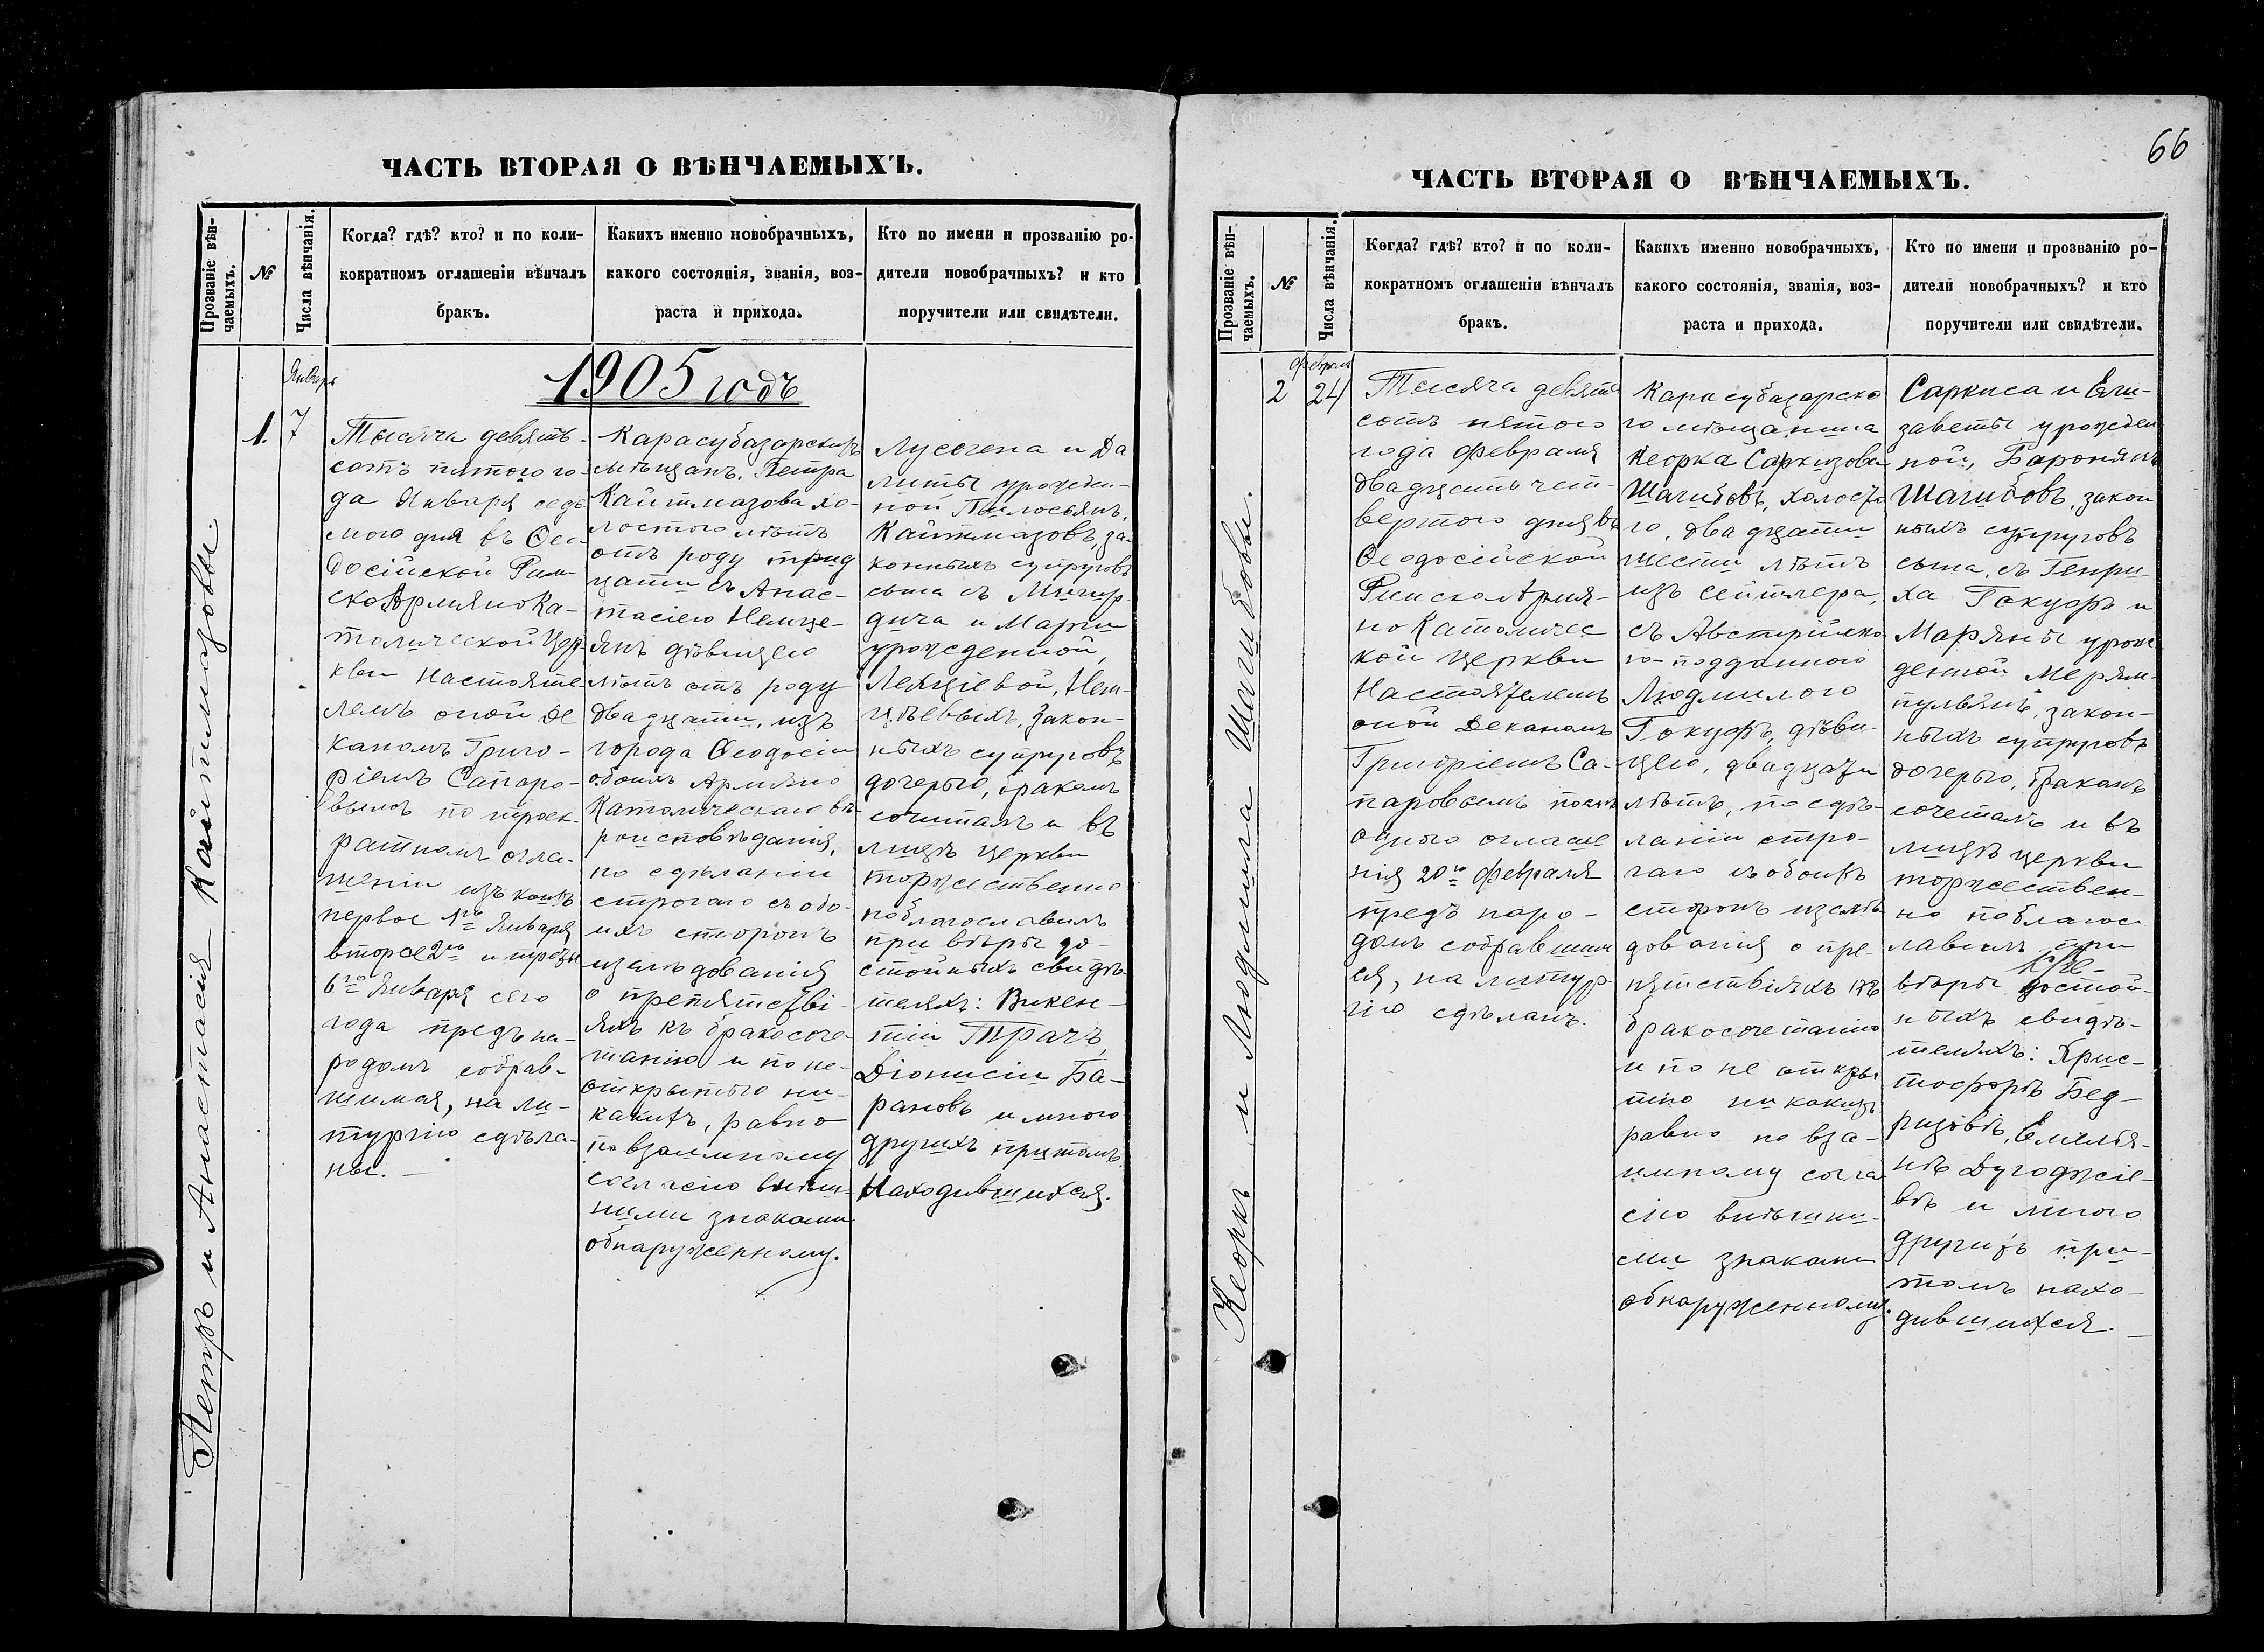 ЧАСТЬ ВТОРАЯ О ВѢНЧАЕМЫХЪ.
Прозваніе вѣн-
чаемыхъ.
№
Числа вѣнчанія.
Когда? гдѣ? кто? и по коли-
кократномъ оглашеніи вѣнчалъ
бракъ.
Какихъ именно новобрачныхъ,
какого состоянія, званія, воз-
раста и прихода.
Кто по имени и прозванію ро-
дители новобрачныхъ? и кто
поручители или свидѣтели.
1905 годъ
Петръ и Анастасія Кайтмазовы.
1.
Январь
7
Тысяча девять-
сотъ пятого го-
да Января седь
мого дня въ Ѳео-
досійской Рим-
ско Армяно Ка-
толической Цер-
кви Настояте-
лемъ оной Де
каномъ Григо-
ріемъ Сапаро-
вымъ по троек-
ратномъ огла-
шеніи изъ коихъ
первое 1го Января
второе 2го и третье
6го Января сего
года предъ на-
родомъ собрав-
шимся, на ли-
тургію сдѣла-
ны. —
Карасубазарскихъ
мѣщанъ. Петра
Кайтмазова хо-
лостого лѣтъ
отъ роду трид
цати съ Анас-
тасіею Немце-
янъ дѣвицею
лѣтъ отъ роду
двадцати, изъ
города Ѳеодосіи
обоихъ Армяно
Католическаго вѣ-
роисповѣданія,
по сдѣланіи
строгаго съ обо-
ихъ сторонъ
изслѣдованія
о препятстві-
яхъ къ бракосоче-
танію и по не-
открытію ни-
какихъ, равно
по взаимному
согласію внѣш-
ними знаками
обнаруженному.
Лусегена и Да
литы урожден-
ной Пилосьянъ,
Кайтмазовъ, за-
конныхъ супруговъ
сына съ Мигир-
дича и Маріи
урожденной,
Нем-
цѣевыхъ, закон-
ныхъ супруговъ
дочерью, бракомъ
сочиталъ и въ
лицѣ церкви
торжественно
поблагословилъ
при вѣры до-
стойныхъ свидѣ-
теляхъ: Викен-
тіи Трачъ,
Діонисіи Ба-
рановъ и много
другихъ притомъ
Находившихся.
66
ЧАСТЬ ВТОРАЯ О ВѢНЧАЕМЫХЪ.
Прозваніе вѣн-
чаемыхъ.
№
Числа вѣнчанія.
Когда? гдѣ? кто? и по коли-
кократномъ оглашеніи вѣнчалъ
бракъ.
Какихъ именно новобрачныхъ,
какого состоянія, званія, воз-
раста и прихода.
Кто по имени и прозванію ро-
дители новобрачныхъ? и кто
поручители или свидѣтели.
Кеоркъ и Людмила Шагибовы.
2
Февраля
24
Тысяча девять
сотъ пятого
года Февраля
двадцать чет-
вертого дня въ
Ѳеодосійской
Римско Армя-
но Католичес
кой Церкви
Настоятелемъ
оной Деканомъ
Григоріемъ Са-
паровымъ послѣ
одного оглаше
нія 20го Февраля
предъ наро-
домъ собравшим
ся, на литур-
гію сдѣланъ.
Карасубазарско
го мѣщанина
Кеорка Саркизова
Шагибовъ, холоста
го, двадцати
шести лѣтъ
изъ Сейтлера,
съ Австрійско
го-подданного
Людмилою
Гокуфъ, дѣви-
цею, двадцати
лѣтъ, по сдѣ-
ланіи стро-
гаго съ обоихъ
сторонъ изслѣ
дованія о пре-
пятствіяхъ къ
бракосочетанію
и по не откры
тію никакихъ
равно по вза-
имному согла
сію внѣшни-
ми знаками
обнаруженному.
Саркиса и Ели-
заветы урожден
ной, Баронянъ
Шагибовъ, закон
ныхъ супруговъ
сына, съ Генри-
ха Гокуфъ и
Маріяны урож
денной
закон-
ныхъ супруговъ
дочерью, бракомъ
сочеталъ и въ
лицѣ церкви
торжествен-
но поблагос
ловилъ при
вѣры достой-
ныхъ свидѣ-
теляхъ: Хрис-
тофорѣ Бед-
ризовѣ, Емелія-
нѣ Дугоджіе-
вѣ и много
другихъ при-
томъ нахо-
дившихся. —